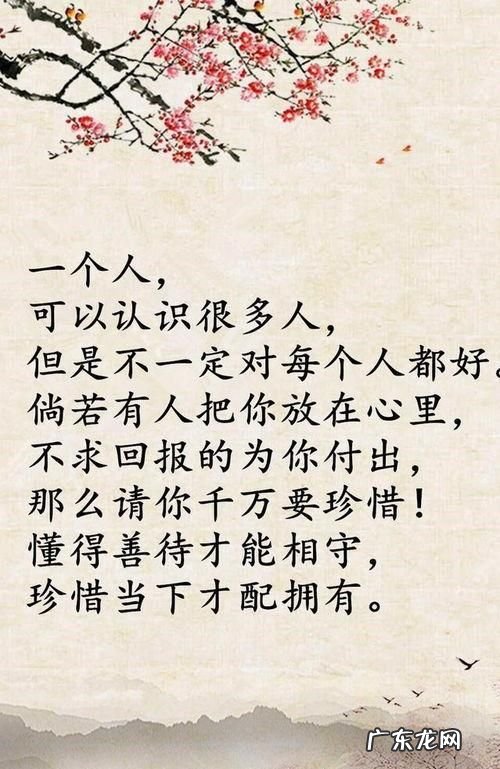 一个人，
可以认识很多人，
但是不一定对每个人都好。
倘若有人把你放在心里，
不求回报的为你付出，
那么请你千万要珍惜！
懂得善待才能相守，
珍惜当下才配拥有。
广东龙网